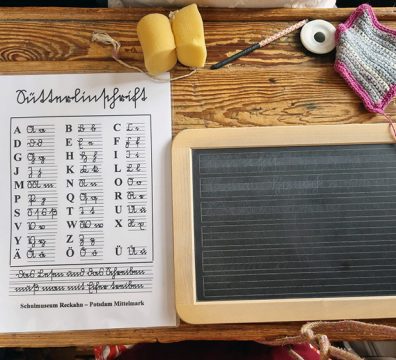 Sütterlinschrift
A A a B B b C C c
D D d E E e F F f
G G g H H h I I i
J J j K K k L L l
M M m N N n O O o
P P p Q Q q R R r
S S s T T t U U u
V V v W W w X X x
Y Y y Z Z z
Ä Ä ä Ö Ö ö Ü Ü ü
Das Lesen und das Schreiben
muß man mit Eifer treiben
Schulmuseum Reckahn – Potsdam Mittelmark